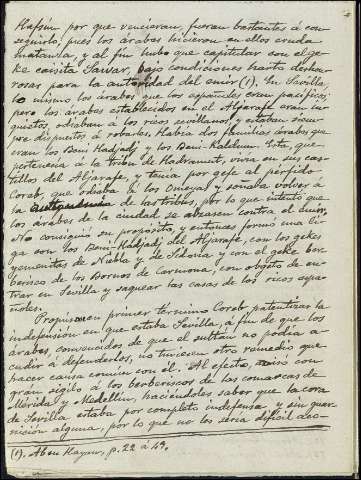 Hafsún, por que vencieran, fueran bastantes á con-
seguirlo, pues los árabes hicieron en ellos cruda
matanza, y al fin hubo que capitular con el ge-
ke caisita Sawar, bajo condiciones harto deshon-
rosas para la autoridad del emir (1). En Sevilla,
lo mismo los árabes que los españoles eran pacíficos,
pero los árabes establecidos en el Aljarafe eran in-
quietos, odiaban á los ricos sevillanos y estaban siem-
pre dispuestos á robarles. Había dos familias árabes que
eran los Beni Hadjadj y los Beni-Kaldun. Esta, que
pertenecía á la tribu de Hadramot, vivía en sus cas-
tillos del Aljarafe, y tenía por gefe al pérfido
Coreb, que odiaba á los Omeyas y soñaba volver á
la de las tribus, por lo que intentó que
los árabes de la ciudad se alzasen contra el emir.
No consiguió su propósito, y entonces formó una li-
ga con los Beni-Hadjadj del Aljarafe, con los gekes
yemenitas de Niebla y de Sidona y con el geke ber-
berisco de los Bornos de Carmona, con objeto de en-
trar en Sevilla y saquear las casas de los ricos espa-
ñoles.
Propúsose en primer término Coreb patentizar la
indefensión en que estaba Sevilla, á fin de que los
árabes, convencidos de que el sultán no podía a-
cudir á defenderlos, no tuviesen otro remedio que
hacer causa común con él. Al efecto, avisó con
gran sigilo á los berberiscos de las comarcas de
Mérida y Medellín, haciéndoles saber que la cora
de Sevilla estaba por completo indefensa y sin guar-
nición alguna, por lo que no les sería difícil aco-
(1). Aben Hayan, p. 22 á 49.